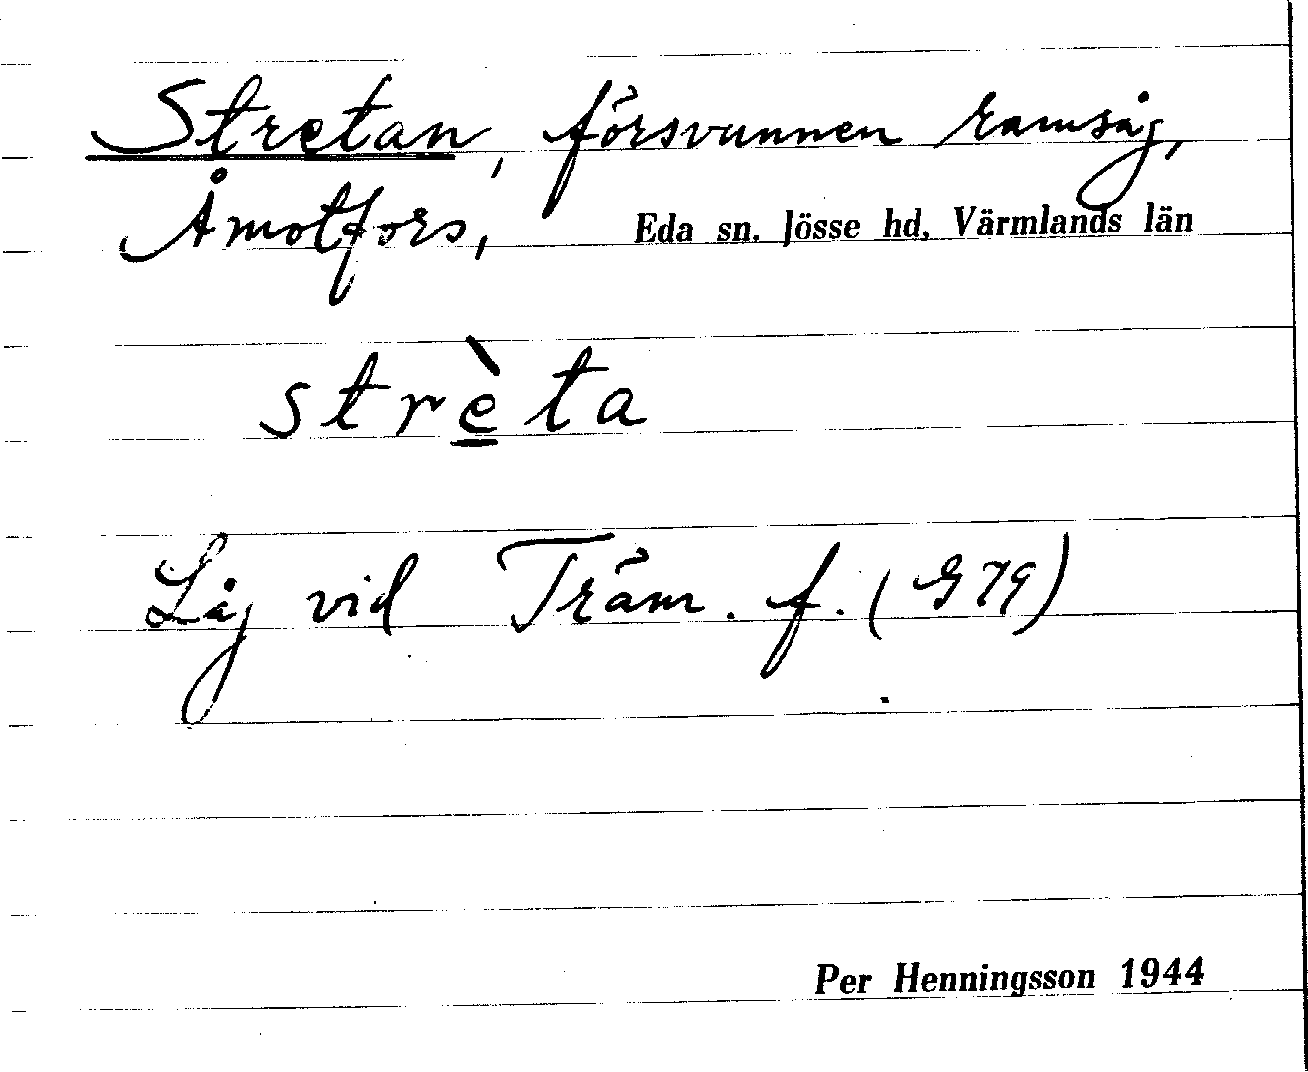 Stretan, försvunnen ramsåg,
Åmotfors, Eda sn. Jösse hd, Värmlands län
strèta
Låg vid Träm. f. (G79)
Per Henningsson 1944